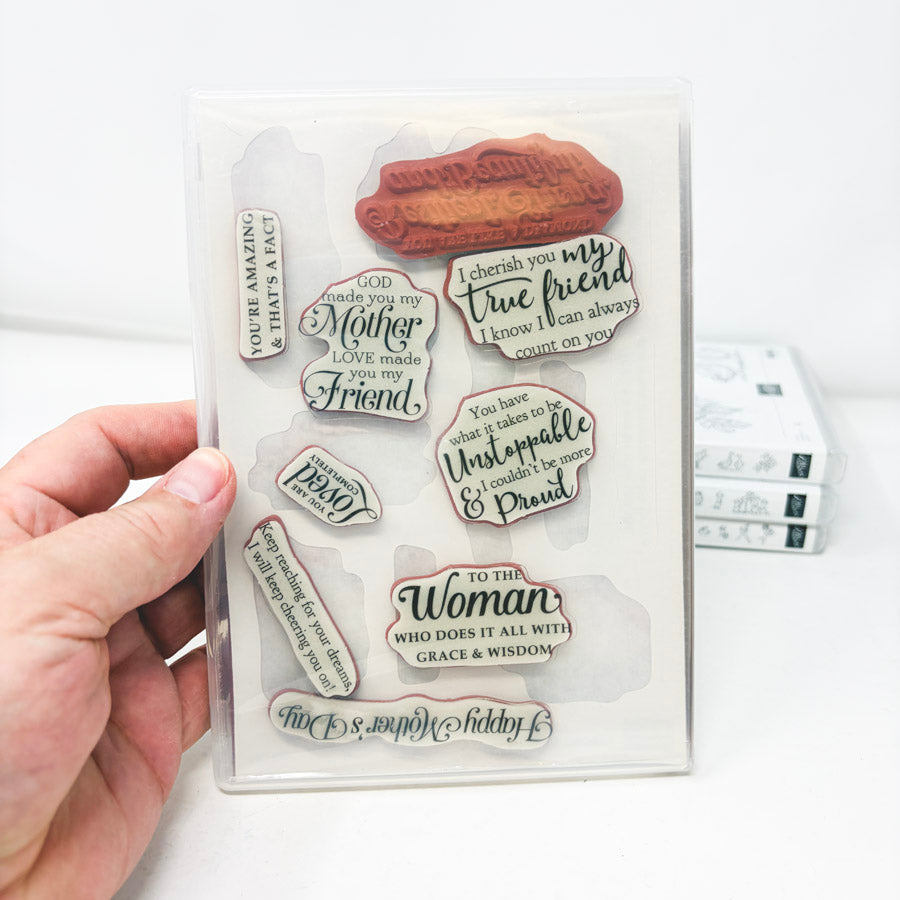 YOU'RE AMAZING
& THAT'S A FACT
GOD
made you my
Mother
LOVE made
you my
Friend
I cherish you my
true friend
I know I can always
count on you
You have
what it takes to be
Unstoppable
I couldn't be more
& Proud
YOU ARE
Loved
COMPLETELY
Keep reaching for your dreams,
I will keep cheering you on!
TO THE
Woman
WHO DOES IT ALL WITH
GRACE & WISDOM
Happy Mother's Day